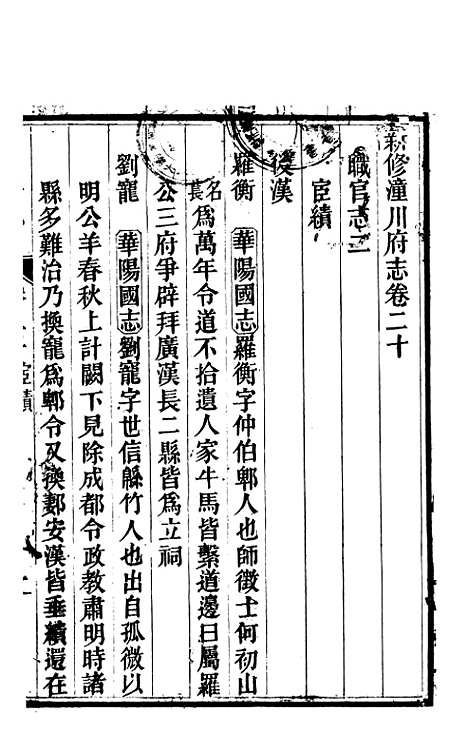 新修潼川府志卷二十
職官志三
宦績
後漢
羅衡 華陽國志羅衡字仲伯郫人也師徵士何初山
名長爲萬年令道不拾遺人家牛馬皆繫道邊曰屬羅
公三府爭辟拜廣漢長二縣皆爲立祠
劉寵 華陽國志劉寵字世信緜竹人也出自孤微以
明公羊春秋上計闕下見除成都令政教肅明時諸
縣多難治乃換寵爲郫令又換郪安漢皆垂績還在
宦績